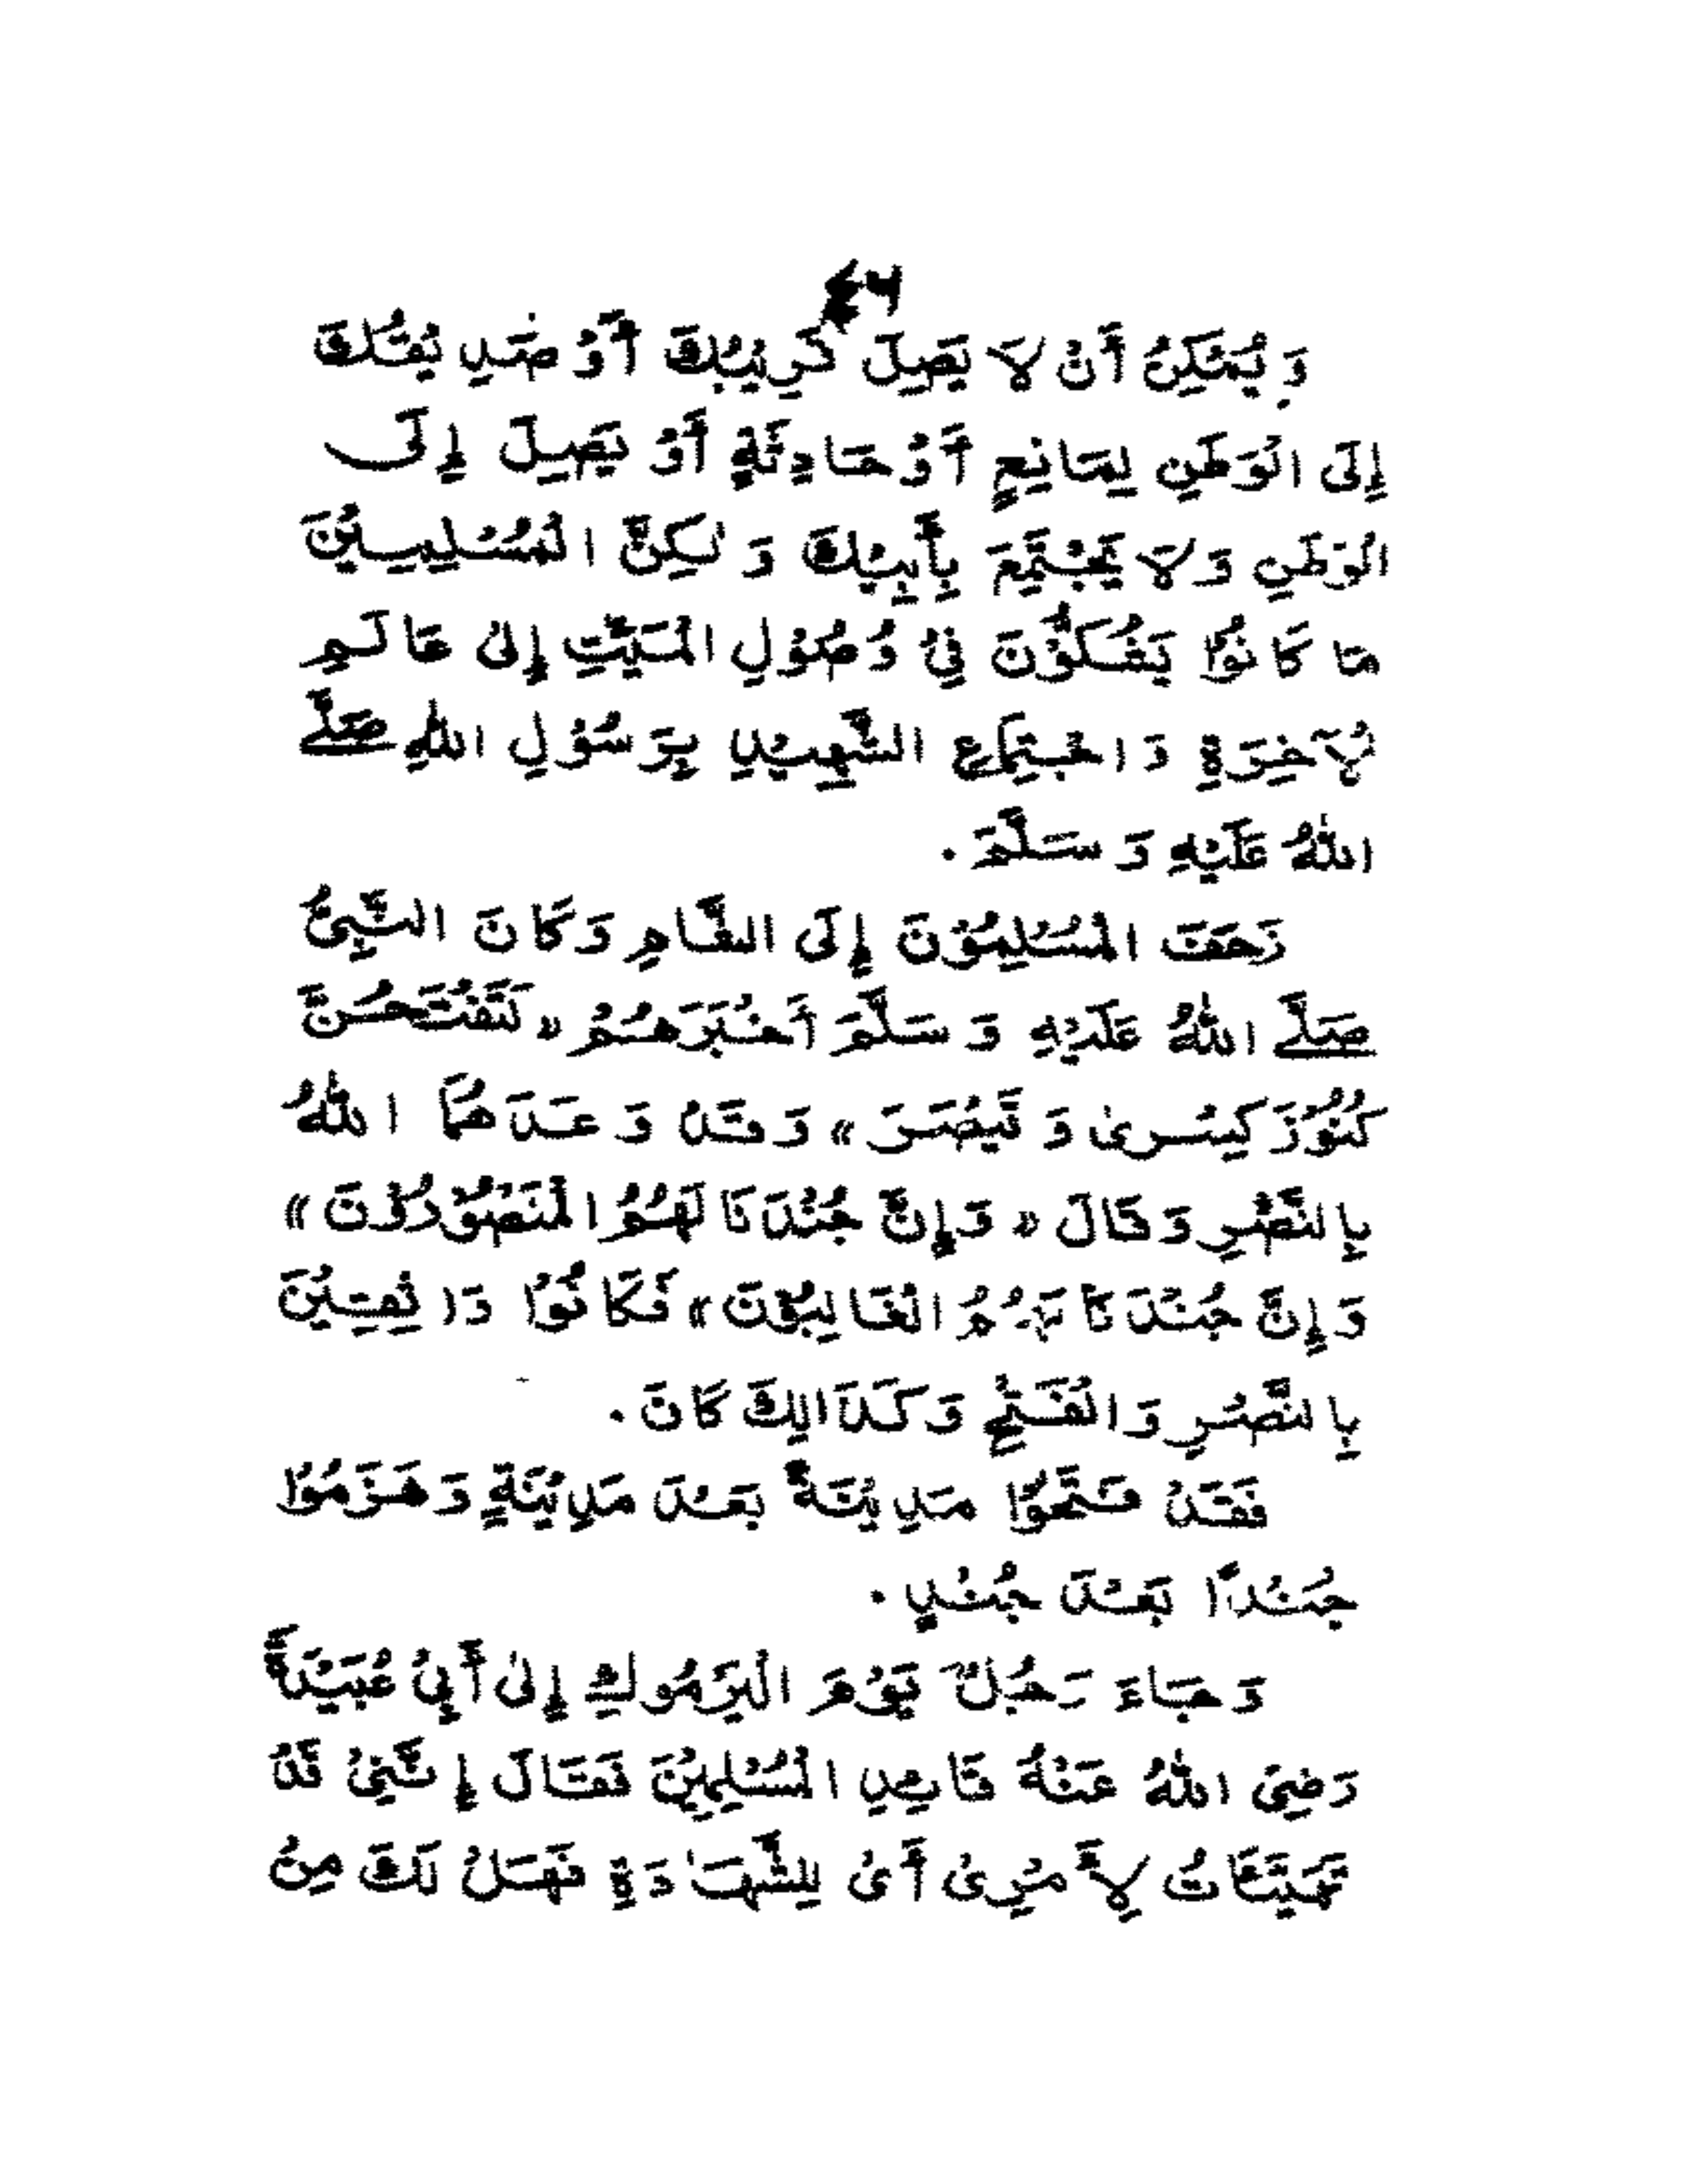 ٤٦
وَ يُمْكِنُ أَنْ لَا يَصِلَ قَرِيْبُكَ أَوْ صَدِيْقُكَ
إِلَى الْوَطَنِ لِمَانِعٍ أَوْ حَادِثَةٍ أَوْ يَصِلَ إِلَى
الْوَطَنِ وَلَا يَجْتَمِعَ بِأَبِيْكَ وَ لٰكِنَّ الْمُسْلِمِيْنَ
مَا كَانُوْا يَشُكُّوْنَ فِيْ وُصُوْلِ الْمَيِّتِ إِلىٰ عَالَمِ
الْآخِرَةِ وَاجْتِمَاعِ الشَّهِيْدِ بِرَسُوْلِ اللهِ صَلَّى
اللهُ عَلَيْهِ وَ سَلَّمَ .
زَحَفَ الْمُسْلِمُوْنَ إِلَى الشَّامِ وَكَانَ النَّبِيُّ
صَلَّى اللهُ عَلَيْهِ وَ سَلَّمَ أَخْبَرَهُمْ « لَتَفْتَحُنَّ
كُنُوْزَ كِسْرىٰ وَ قَيْصَرَ » وَ قَدْ وَعَدَهُمُ اللهُ
بِالنَّصْرِ وَقَالَ « وَإِنَّ جُنْدَنَا لَهُمُ الْمَنْصُوْرُوْنَ »
وَإِنَّ جُنْدَنَا لَهُمُ الْغَالِبُوْنَ » فَكَانُوْا وَاثِقِيْنَ
بِالنَّصْرِ وَالْفَتْحِ وَكَذَالِكَ كَانَ .
فَقَدْ فَتَحُوْا مَدِيْنَةً بَعْدَ مَدِيْنَةٍ وَهَزَمُوْا
جُنْدًا بَعْدَ جُنْدٍ .
وَجَاءَ رَجُلٌ يَوْمَ الْيَرْمُوكِ إِلىٰ أَبِيْ عُبَيْدَةَ
رَضِيَ اللهُ عَنْهُ قَائِدِ الْمُسْلِمِيْنَ فَقَالَ إِنَّنِيْ قَدْ
تَهَيَّأْتُ لِأَمْرِيْ أَيْ لِلشَّهَادَةِ فَهَلْ لَكَ مِنْ